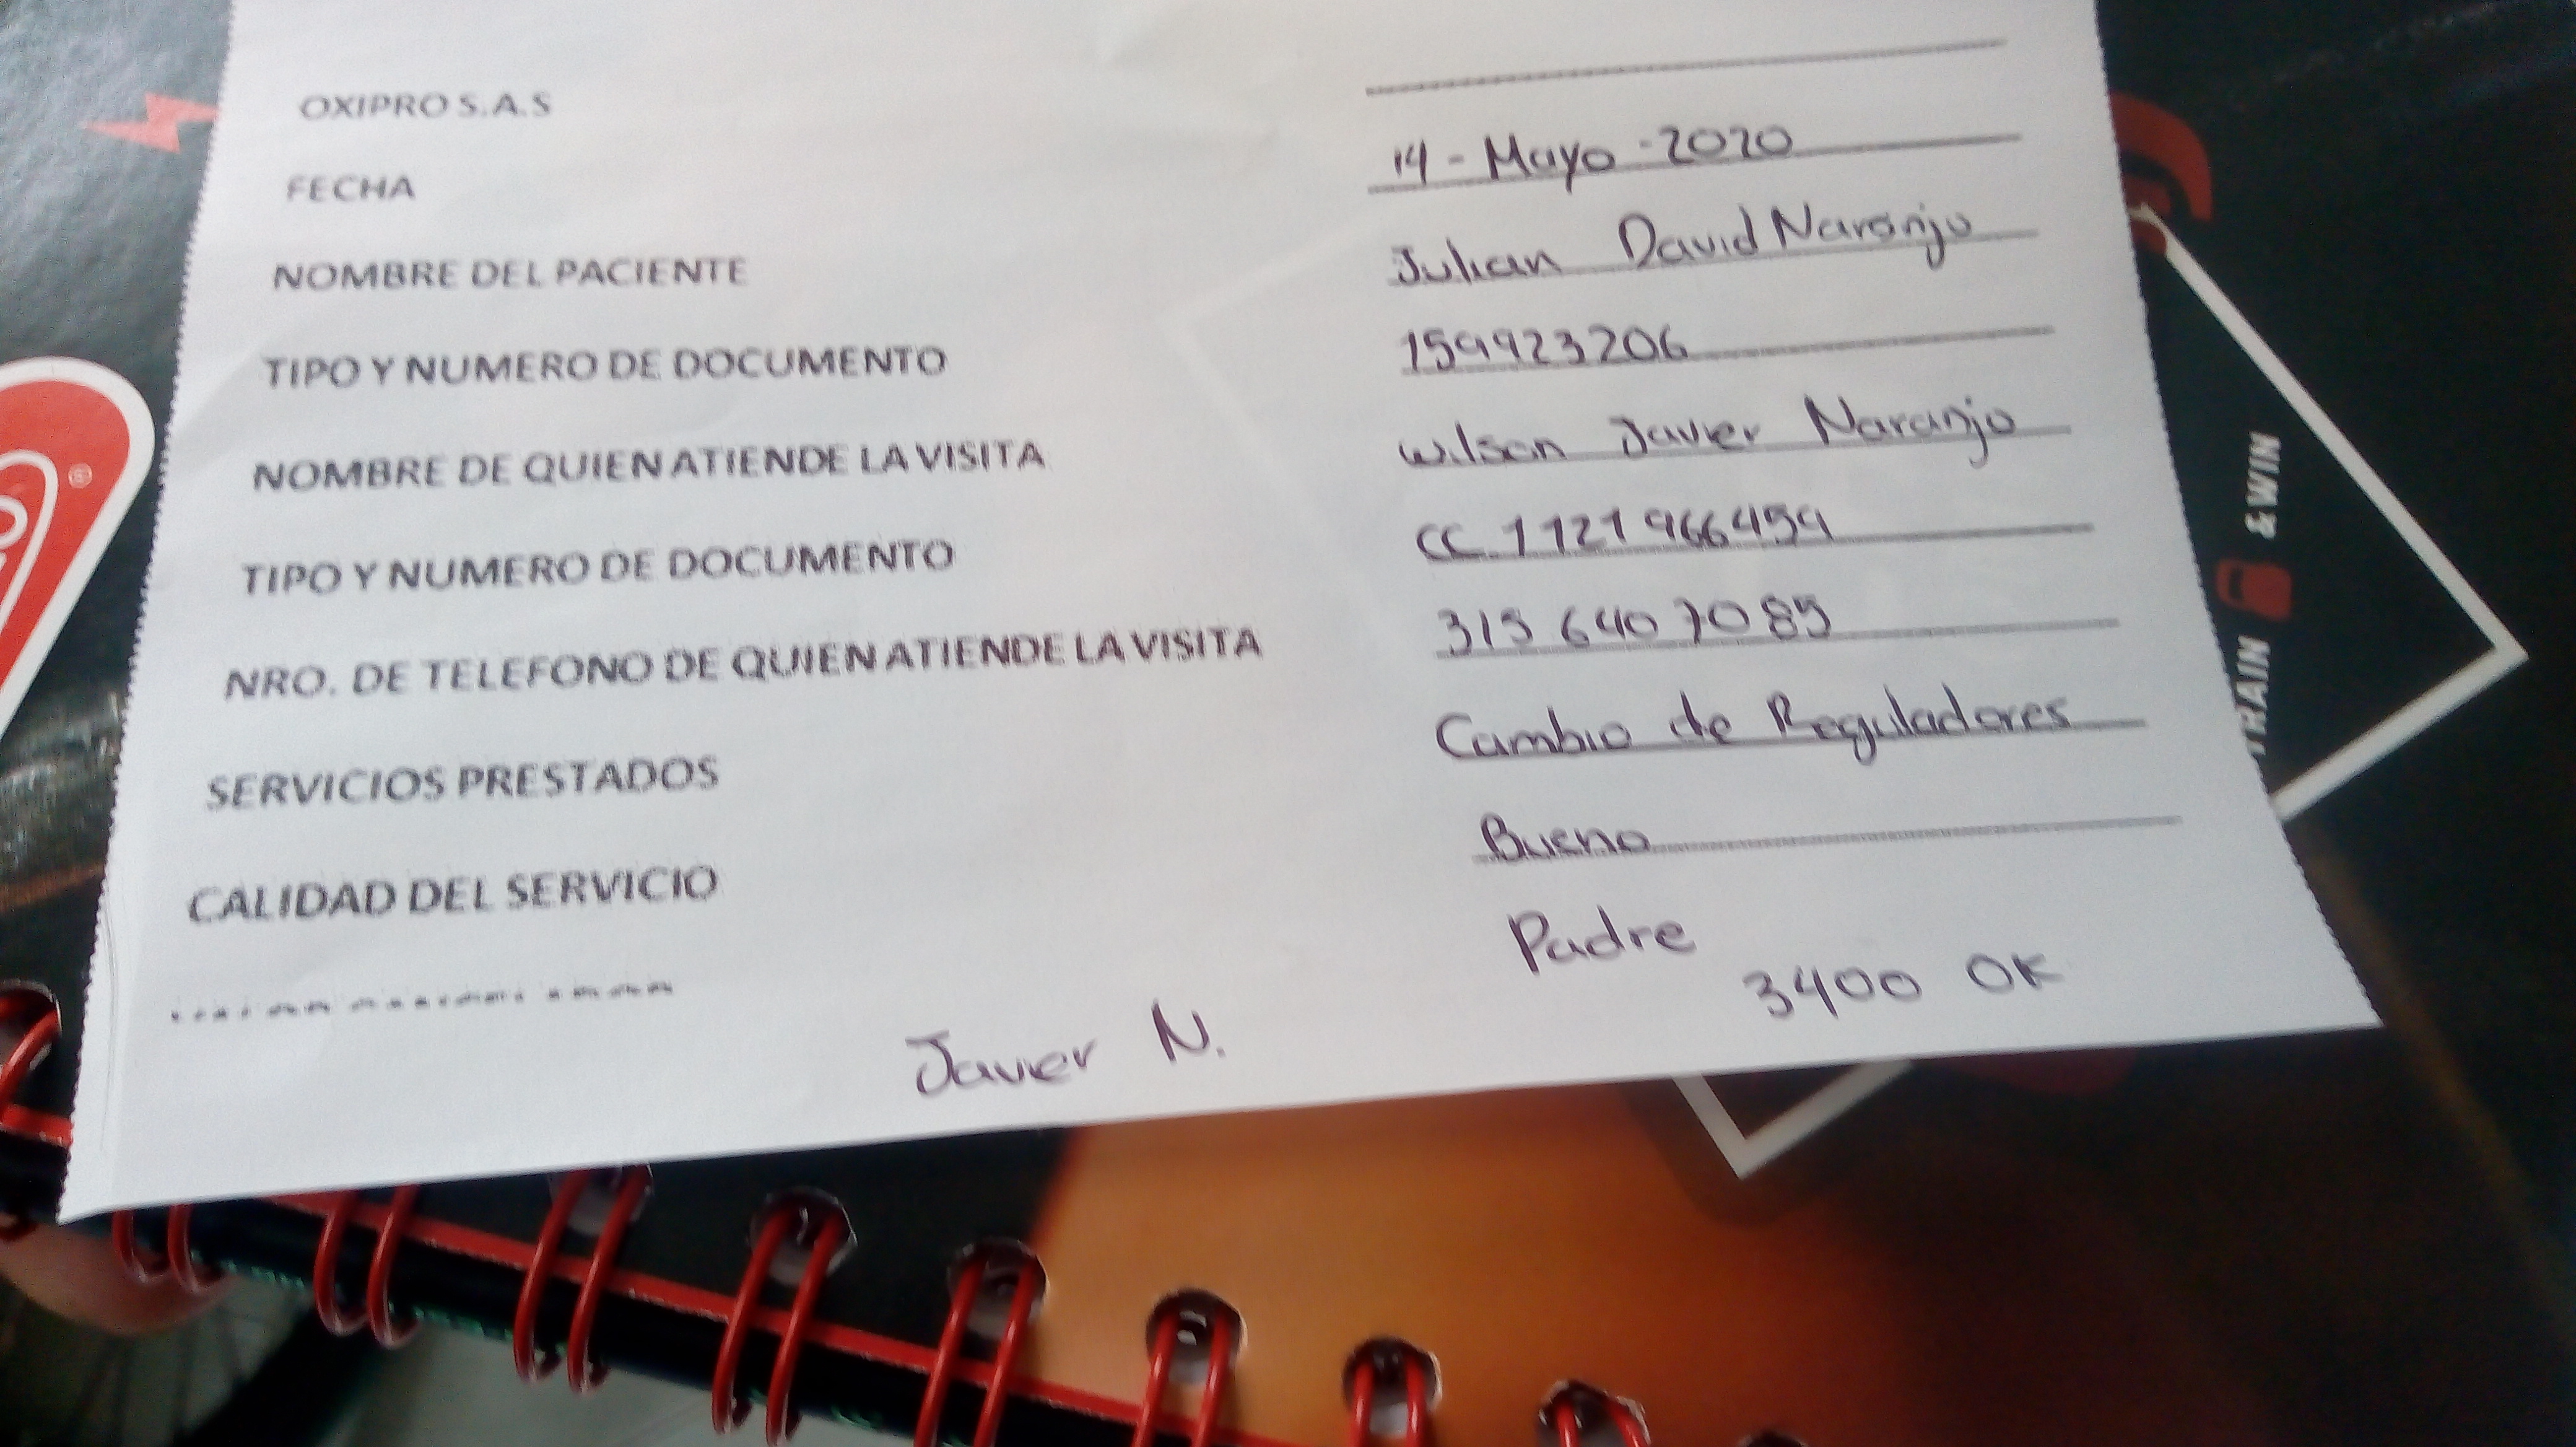 OXIPRO S.A.S
FECHA 14 - Mayo - 2020
NOMBRE DEL PACIENTE Julian David Naranjo
TIPO Y NUMERO DE DOCUMENTO 159923206
NOMBRE DE QUIEN ATIENDE LA VISITA Wilson Javier Naranjo
TIPO Y NUMERO DE DOCUMENTO CC 1121966459
NRO. DE TELEFONO DE QUIEN ATIENDE LA VISITA 315 640 7085
SERVICIOS PRESTADOS Cambio de Reguladores
CALIDAD DEL SERVICIO Bueno
Padre
3400 OK
Javier N.
TRAIN & WIN